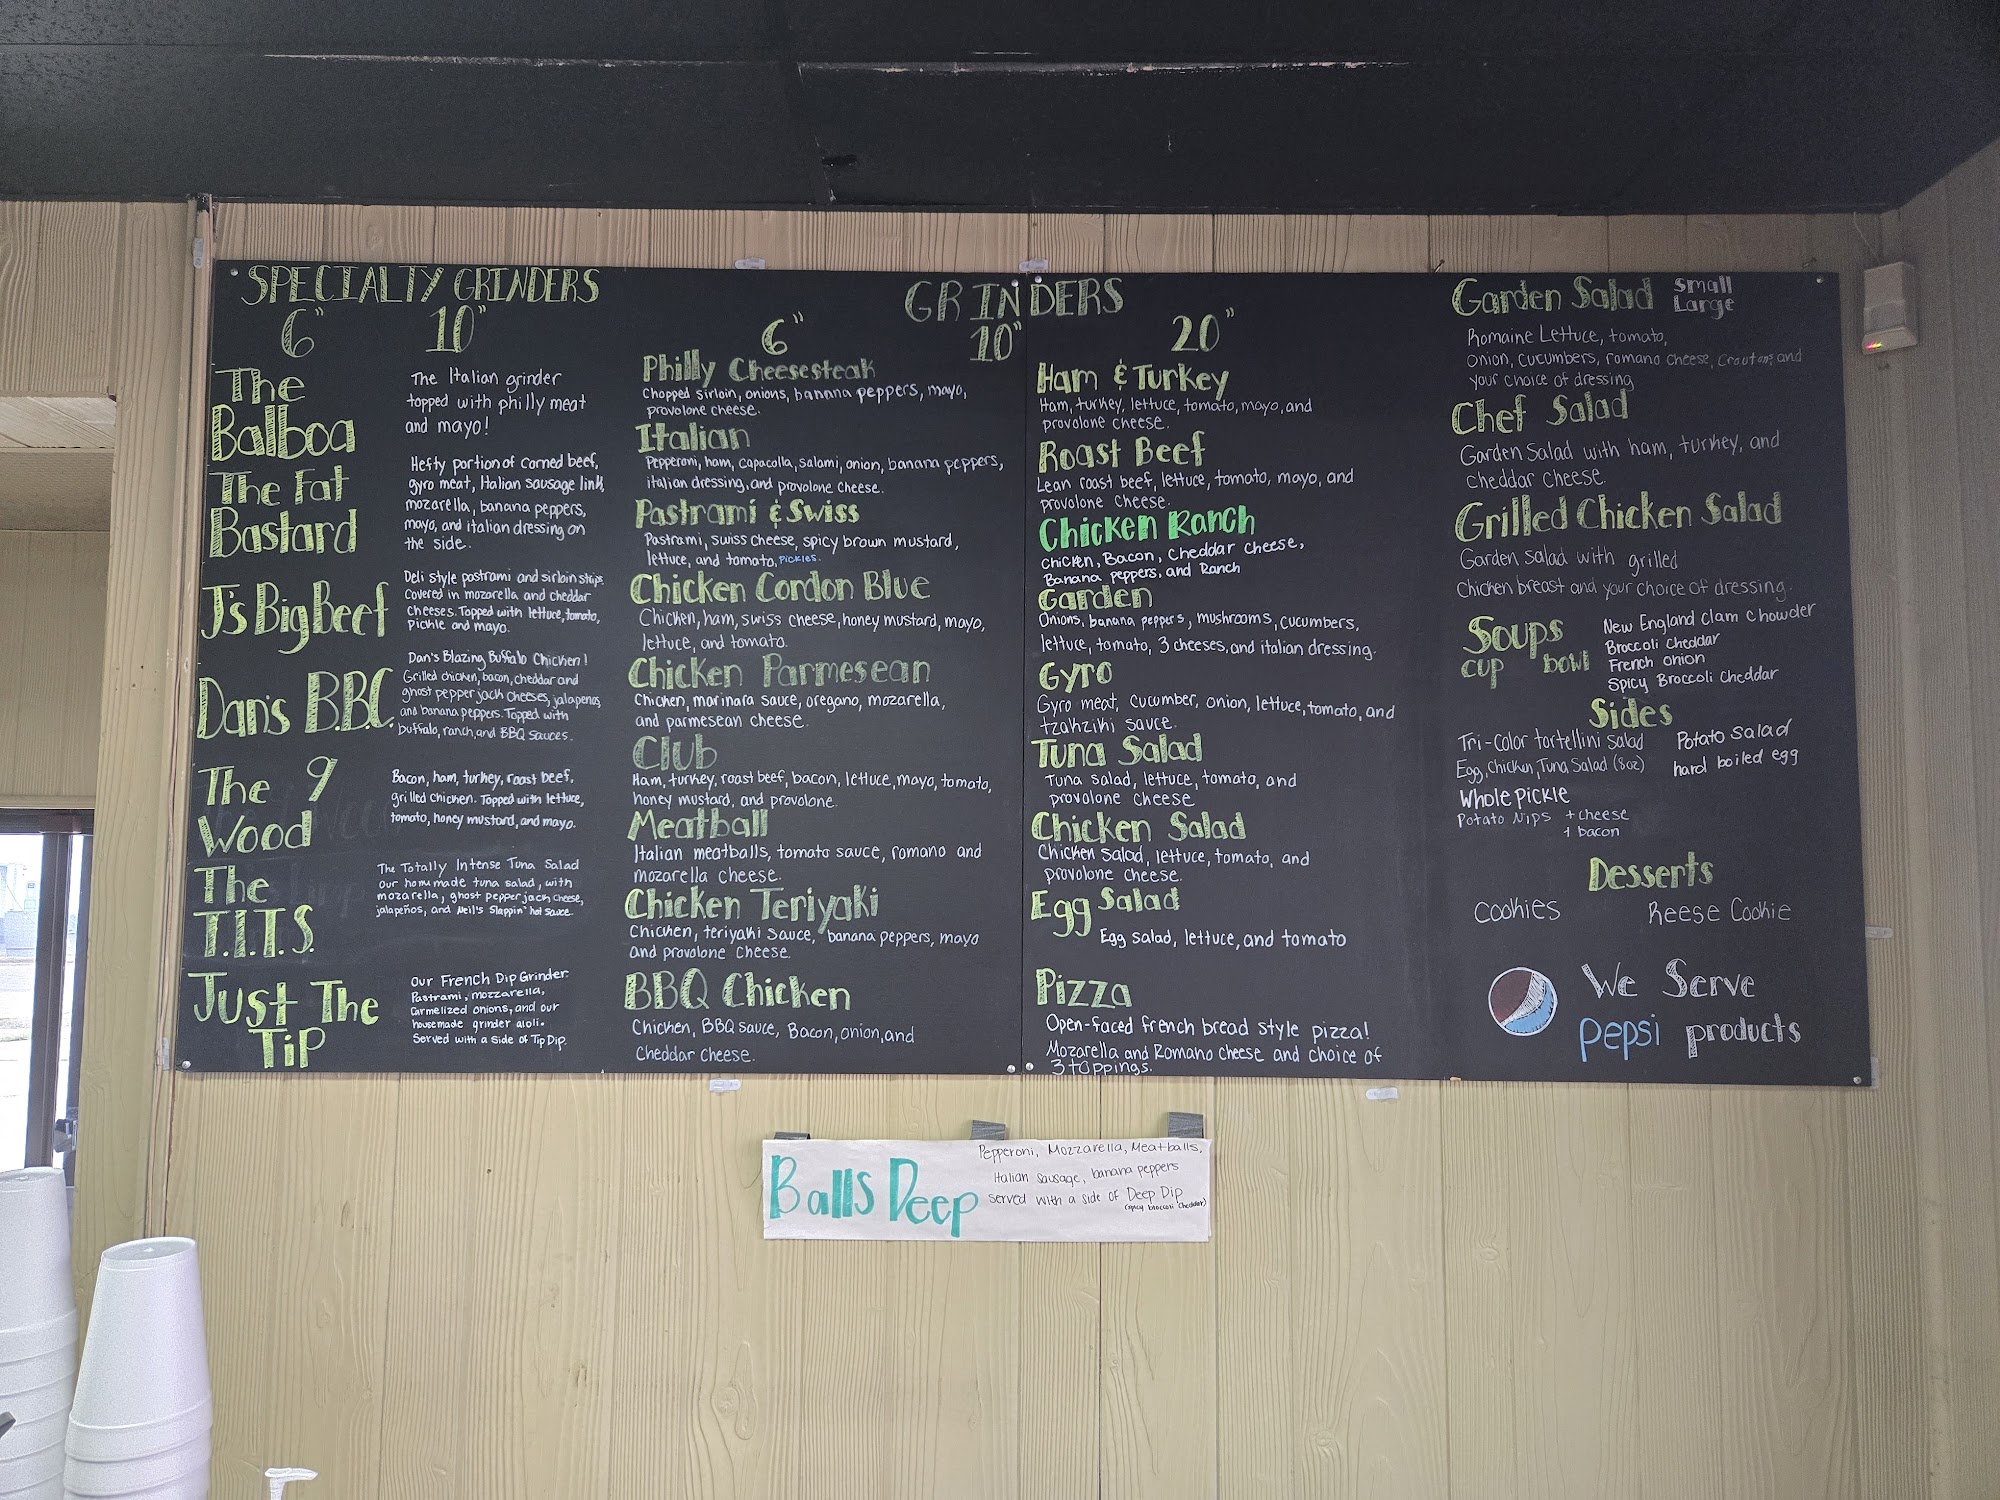 SPECIALTY GRINDERS
6" 10"
The
Balboa
The Italian grinder
topped with philly meat
and mayo!
The Fat
Bastard
Hefty portion of corned beef,
gyro meat, Italian sausage link,
mozarella, banana peppers,
mayo, and italian dressing on
the side.
J's Big Beef
Deli style pastrami and sirloin strips
Covered in mozarella and cheddar
cheeses. Topped with lettuce, tomato,
Pickle and mayo.
Dan's B.B.C.
Dan's Blazing Buffalo Chicken!
Grilled chicken, bacon, cheddar and
ghost pepper jack cheeses, jalapenos,
and banana peppers. Topped with
buffalo, ranch, and BBQ sauces.
The 9
Wood
Bacon, ham, turkey, roast beef,
grilled chicken. Topped with lettuce,
tomato, honey mustard, and mayo.
The
T.I.T.S.
The Totally Intense Tuna Salad
Our homemade tuna salad, with
mozarella, ghost pepper jack cheese,
jalapeños, and Neil's Slappin' hot sauce.
Just The
Tip
Our French Dip Grinder.
Pastrami, mozzarella,
Carmelized onions, and our
housemade grinder aioli.
Served with a side of Tip Dip.
GRINDERS
6" 10" 20"
Philly Cheesesteak
Chopped sirloin, onions, banana peppers, mayo,
provolone cheese.
Italian
Pepperoni, ham, capacolla, salami, onion, banana peppers,
italian dressing, and provolone cheese.
Pastrami & Swiss
Pastrami, swiss cheese, spicy brown mustard,
lettuce, and tomato, Pickles.
Chicken Cordon Blue
Chicken, ham, swiss cheese, honey mustard, mayo,
lettuce, and tomato.
Chicken Parmesean
Chicken, marinara sauce, oregano, mozarella,
and parmesean cheese.
Club
Ham, turkey, roast beef, bacon, lettuce, mayo, tomato,
honey mustard, and provolone.
Meatball
Italian meatballs, tomato sauce, romano and
mozarella cheese.
Chicken Teriyaki
Chicken, teriyaki sauce, banana peppers, mayo
and provolone cheese.
BBQ Chicken
Chicken, BBQ sauce, Bacon, onion, and
Cheddar cheese.
Ham & Turkey
Ham, turkey, lettuce, tomato, mayo, and
provolone cheese.
Roast Beef
Lean roast beef, lettuce, tomato, mayo, and
provolone cheese.
Chicken Ranch
Chicken, Bacon, Cheddar cheese,
Banana peppers, and Ranch
Garden
Onions, banana peppers, mushrooms, cucumbers,
lettuce, tomato, 3 cheeses, and italian dressing.
Gyro
Gyro meat, cucumber, onion, lettuce, tomato, and
tzahziki sauce.
Tuna Salad
Tuna salad, lettuce, tomato, and
provolone cheese
Chicken Salad
Chicken salad, lettuce, tomato, and
provolone cheese.
Egg Salad
Egg salad, lettuce, and tomato
Pizza
Open-faced french bread style pizza!
Mozarella and Romano cheese and choice of
3 toppings.
Garden Salad Small
Large
Romaine Lettuce, tomato,
onion, cucumbers, romano cheese, croutons, and
your choice of dressing
Chef Salad
Garden Salad with ham, turkey, and
cheddar cheese.
Grilled Chicken Salad
Garden salad with grilled
Chicken breast and your choice of dressing.
Soups
cup bowl
New England Clam Chowder
Broccoli Cheddar
French onion
Spicy Broccoli Cheddar
Sides
Tri-Color tortellini salad
Egg, Chicken, Tuna Salad (8oz)
Whole pickle
Potato Nips + cheese
+ bacon
Potato salad
hard boiled egg
Desserts
Cookies Reese Cookie
We Serve
pepsi products
Balls Deep
Pepperoni, Mozzarella, Meatballs,
Italian sausage, banana peppers
served with a side of Deep Dip
(spicy broccoli cheddar)